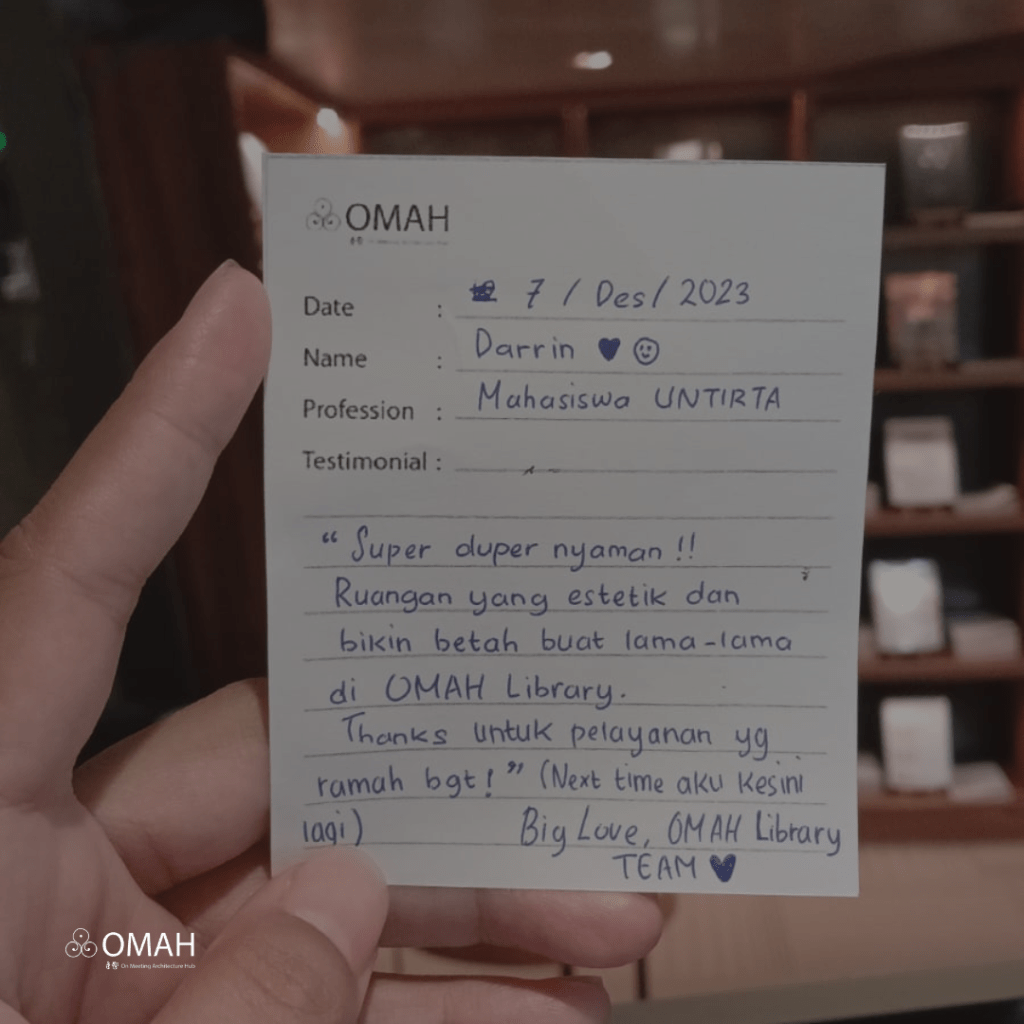 OMAH
Date : 7 / Des / 2023
Name : Darrin
Profession : Mahasiswa UNTIRTA
Testimonial :
“ Super duper nyaman !!
Ruangan yang estetik dan
bikin betah buat lama-lama
di OMAH Library.
Thanks untuk pelayanan yg
ramah bgt ! ” (Next time aku kesini
lagi) Big Love, OMAH Library
TEAM
OMAH
On Meeting Architecture Hub